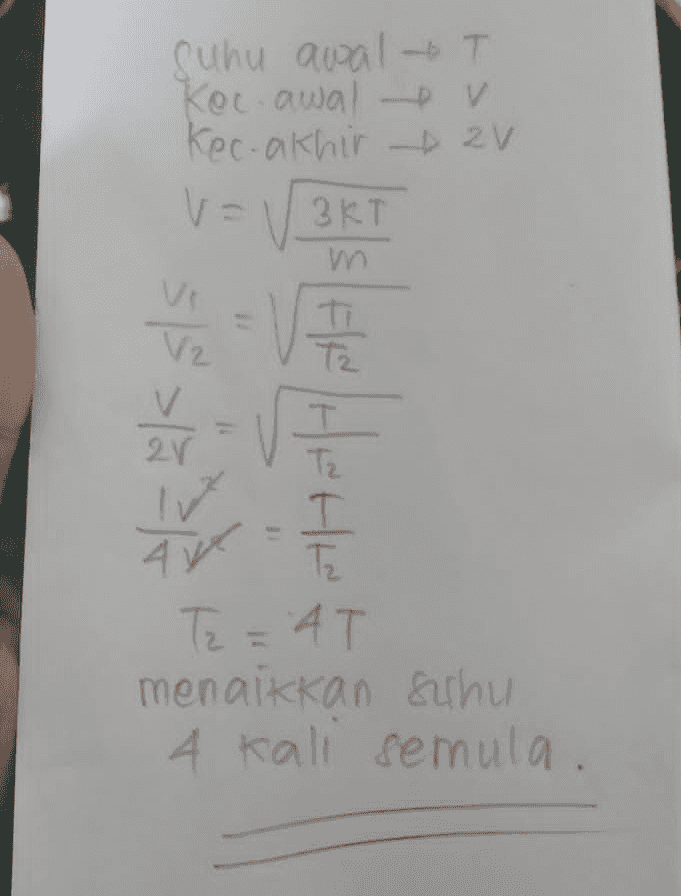 suhu awal → T
Kec. awal → V
Kec. akhir → 2V
V = √(3KT/m)
V1/V2 = √(T1/T2)
V/2V = √(T/T2)
1V²/4V² = T/T2
T2 = 4T
menaikkan suhu
4 kali semula.